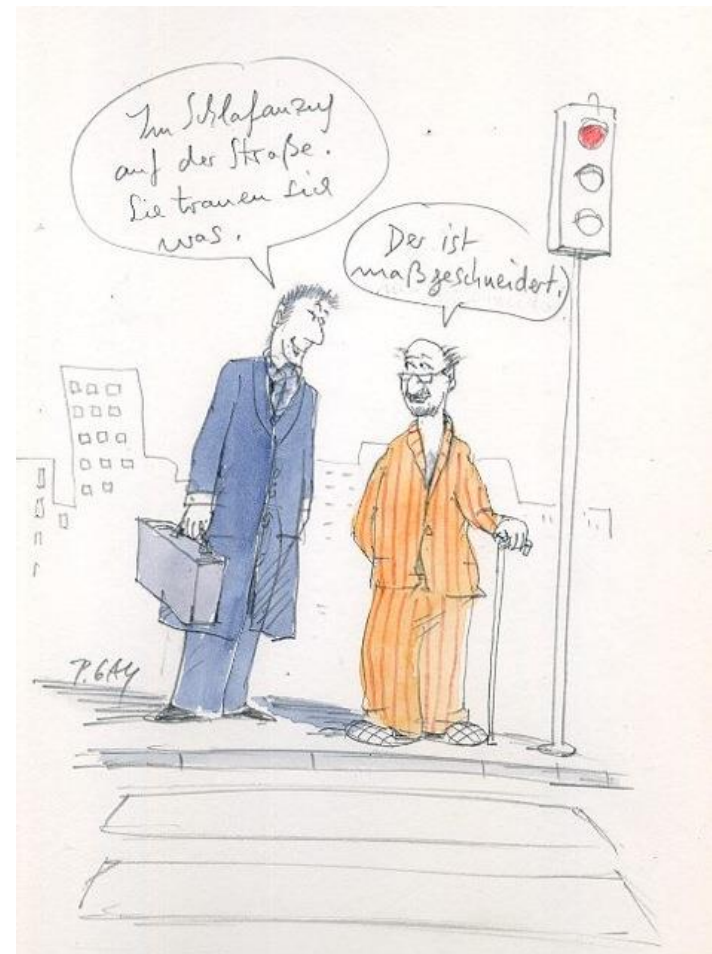 Im Schlafanzug
auf der Straße.
Sie trauen sich
was.
Der ist
maßgeschneidert.
P. GAY